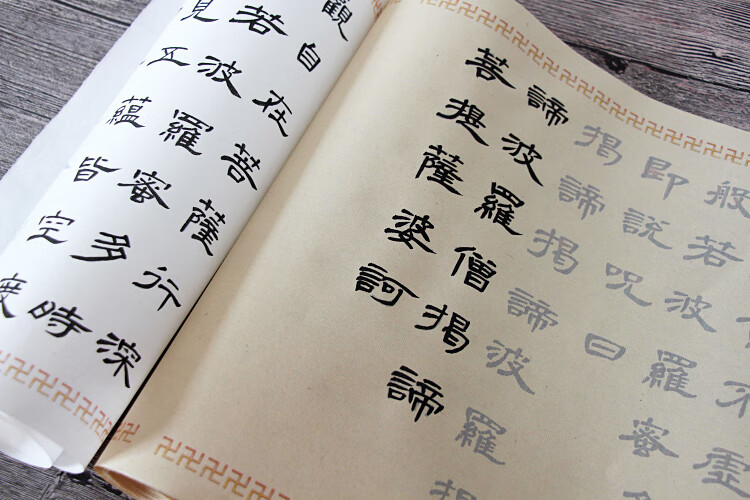 不虛
般若波羅蜜多
即說呪曰
揭諦揭諦波羅揭
諦波羅僧揭諦
菩提薩婆訶
觀自在菩薩行深
若波羅蜜多時
見五蘊皆空度